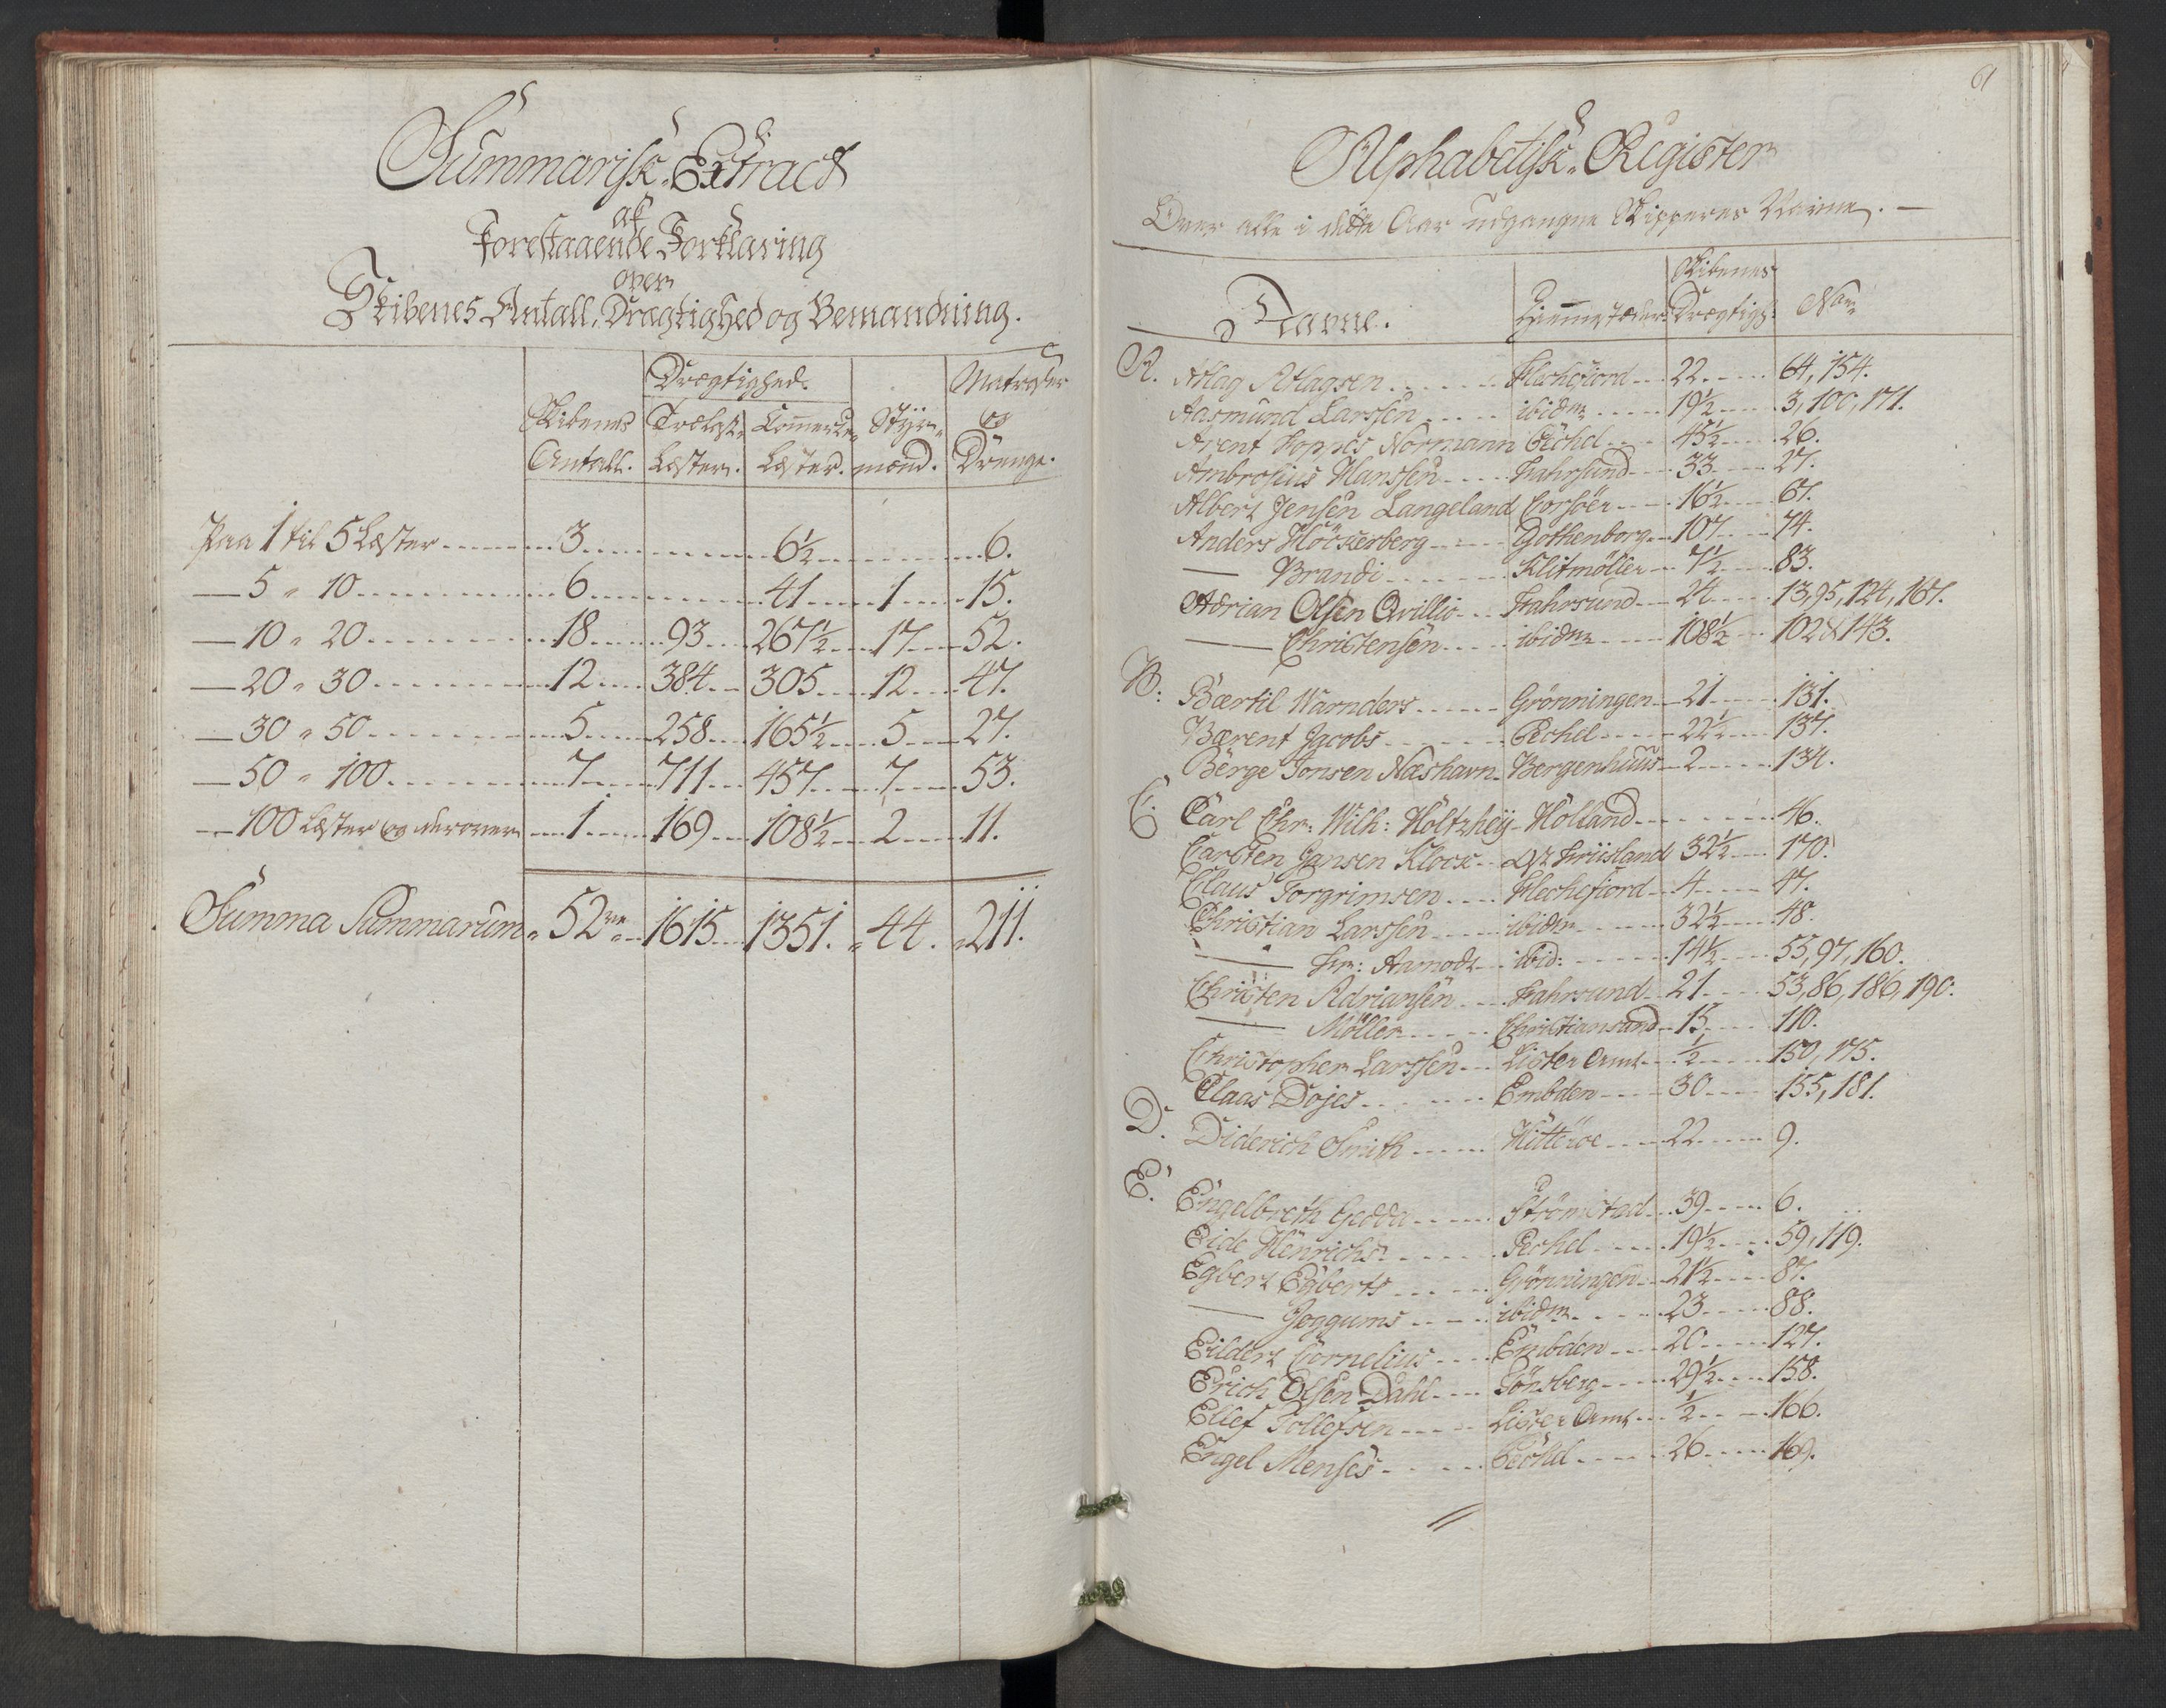 Summarisk Extract
af
Forestaaende Forklaring
over
Skibenes Antall, Drægtighed og Bemandning.
Skibenes Antall. Drægtighed. Trælast Læster. Commerce Læster. Styrmænd. Matroser og Drenge.
Paa 1 til 5 Læster 3 6½ 6.
— 5 " 10 6 41 1 15.
— 10 " 20 18 93 267½ 17 52.
— 20 " 30 12 384 305 12 47.
— 30 " 50 5 258 165½ 5 27.
— 50 " 100 7 711 457 7 53.
— 100 Læster og derover 1 169 108½ 2 11.
Summa Summarum 52 1615 1351. 44. 211.
61
Alphabetisk Register
Over alle i dette Aar udgangne Skipperes Navne. —
Navne. Hiemstæder. Skibenes Drægtigh: No
A. Atlag Atlagsen Flechefiord 22 64, 154.
Aasmund Larssen ibidm 19½ 3, 100, 171.
Arent Hoppes Normann Pechel 45½ 26.
Ambrosius Hanssen Fahrsund 33 27.
Albert Jensen Langeland Corsöer 16½ 67.
Anders Höckerberg Gothenborg 107 74.
— Brandi Klitmöller 7½ 83.
Adrian Olsen Qvillio Fahrsund 24 13, 95, 124, 167.
— Christensen ibidm 108½ 102 & 143.
B: Bærtil Warnders Grönningen 21 131.
Bærent Jacobs Pechel 22½ 137.
Börge Jonsen Næshavn Bergenhuus 2 134.
C. Carl Chr: Wilh: Höltzheÿ Holland 46.
Carsten Jansen Klock Ost Friisland 32½ 170.
Claus Torgrimsen Flechefiord 4 47.
Christian Larssen ibidm 32½ 48.
— Fr: Aamodt ibid: 14½ 55, 97, 160.
Christen Adriansen Fahrsund 21 53, 86, 186, 190.
— Möller Christiansand 15 110.
Christopher Larssen Lister Amt ½ 150, 175.
Claas Dojes Embden 30 155, 181.
D. Diderich Smith Hitteröe 22 9.
E. Engelbreth Gedda Strömstad 39 6.
Eide Hinrichs Pechel 19½ 59, 119.
Egbert Egberts Grönningen 21½ 87.
— Joggums ibidm 23 88.
Eildert Cornelius Embden 20 127.
Erich Olsen Dahl Tönsberg 29½ 158.
Ellef Tollefsen Lister Amt ½ 166.
Engel Menses Pechel 26 169.